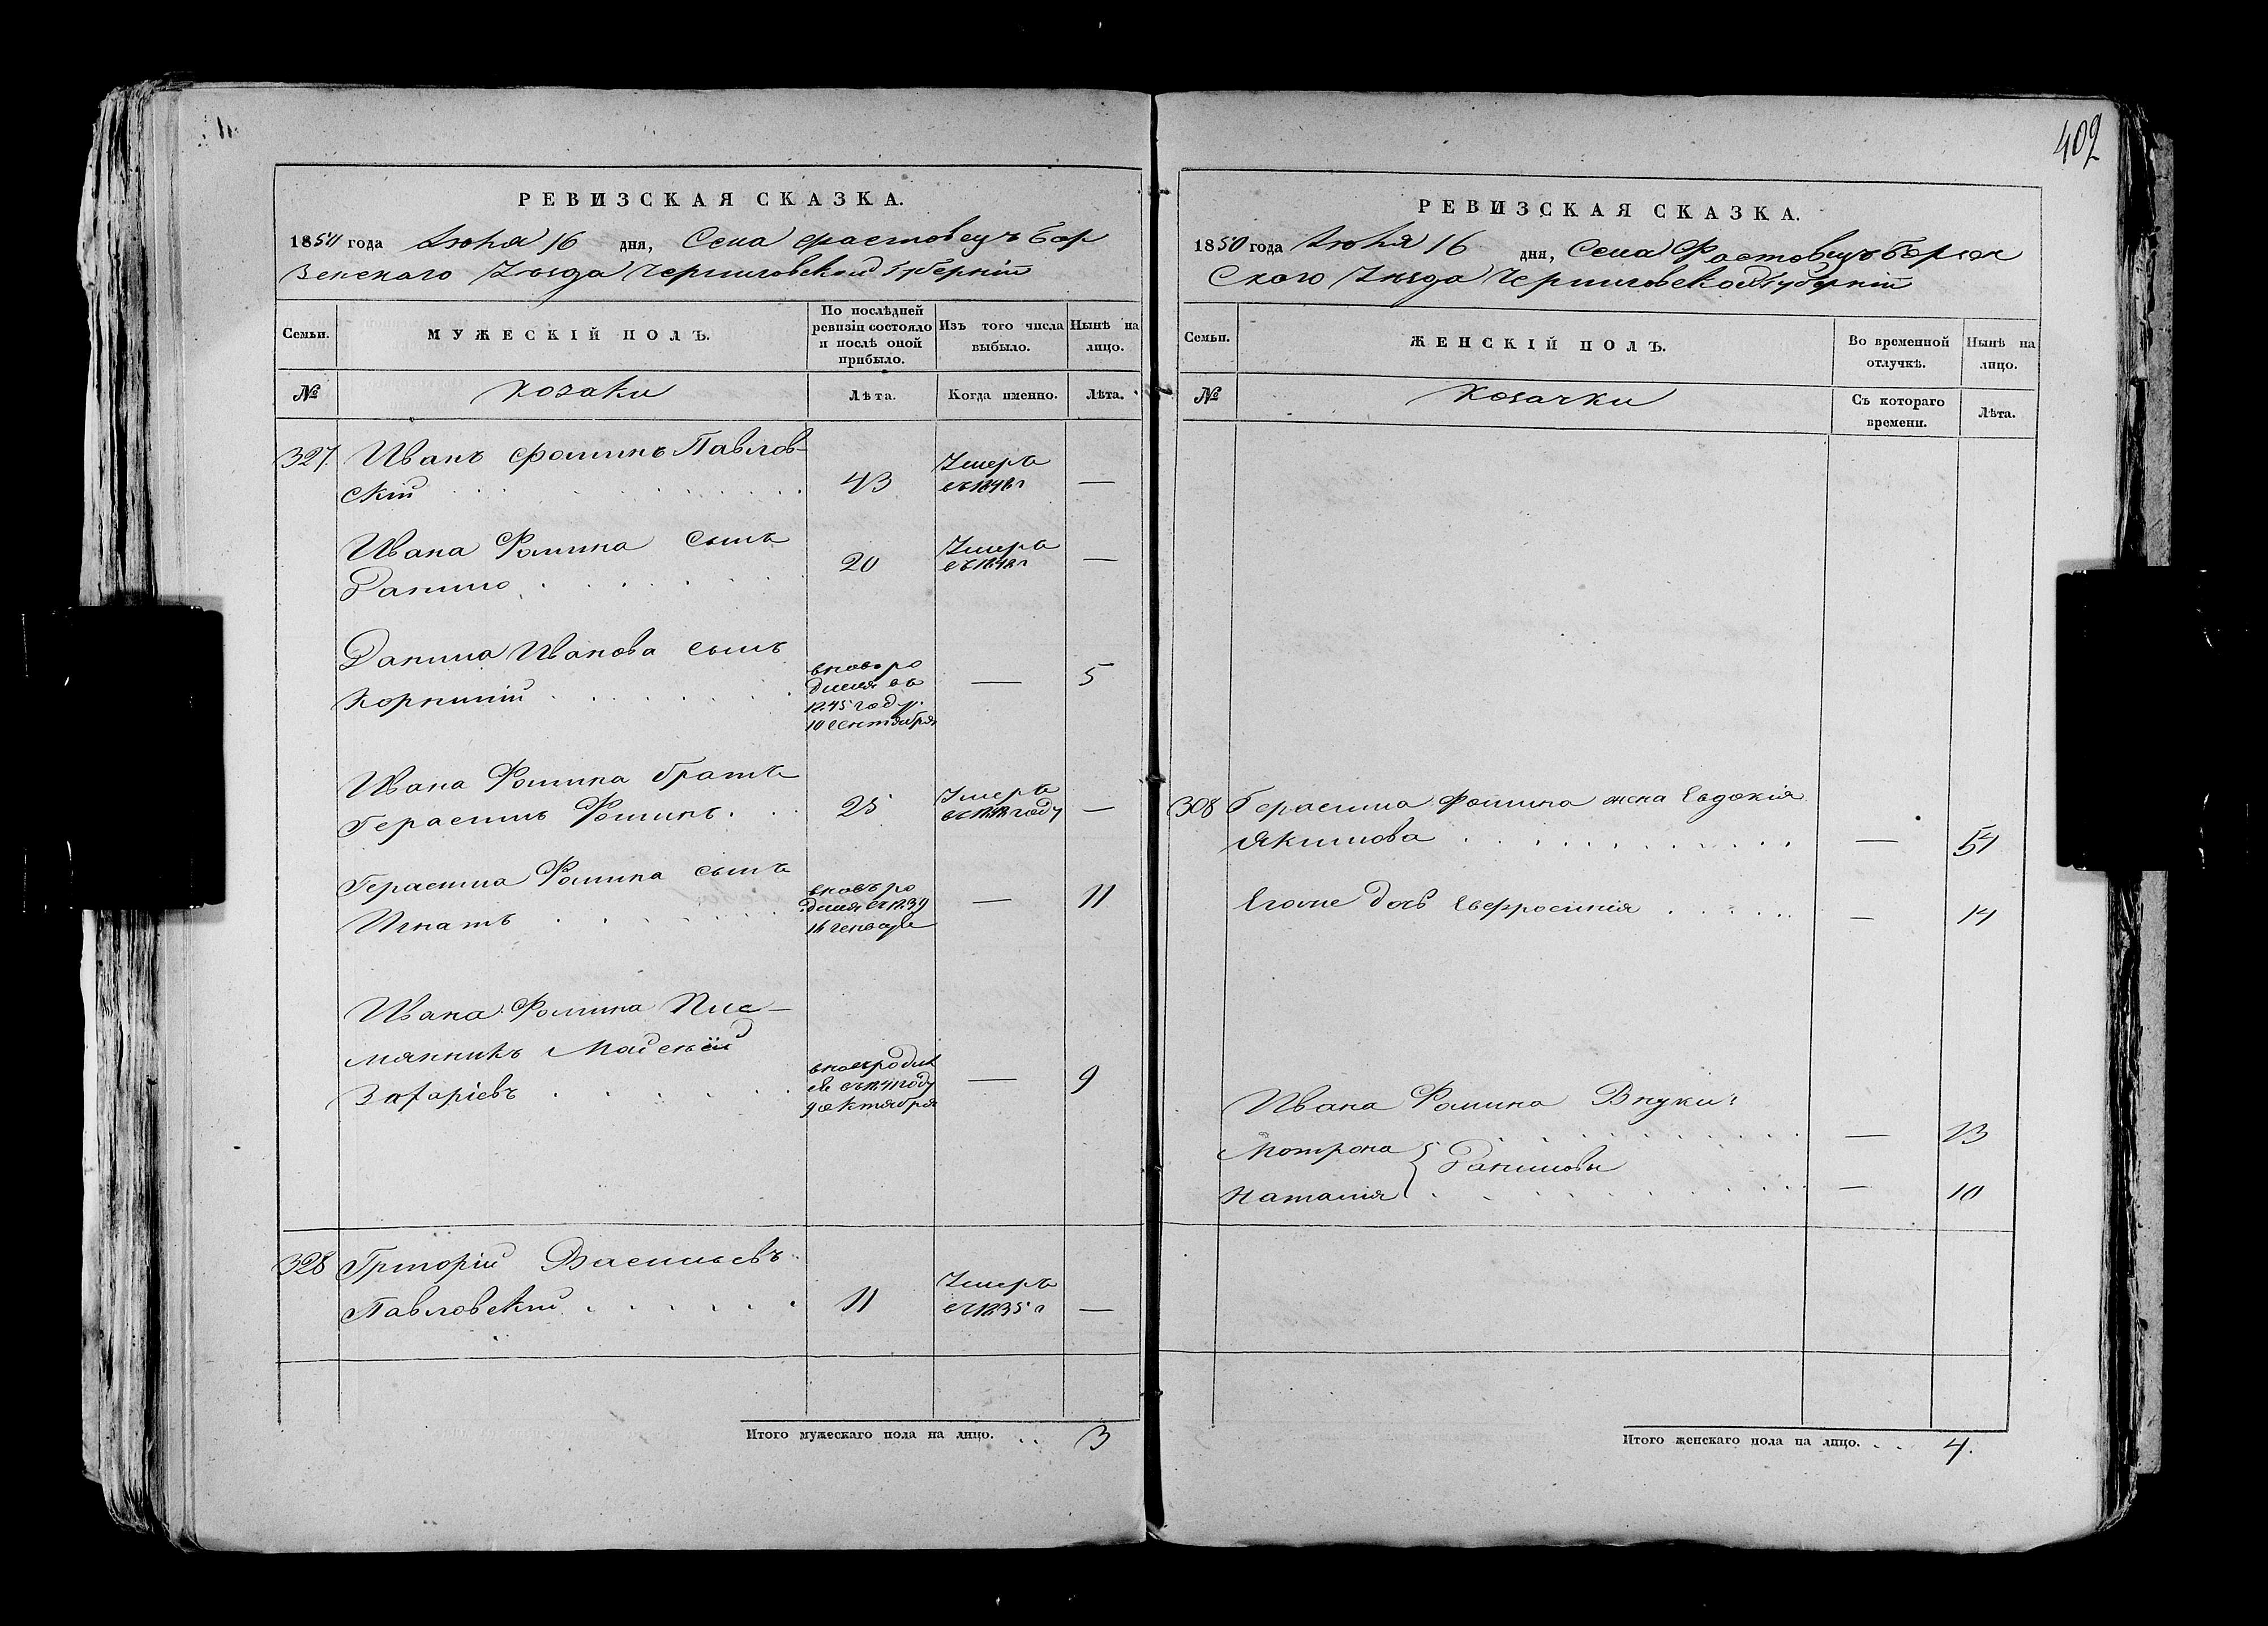 402
РЕВИЗСКАЯ СКАЗКА.
1850 года Іюня 16 дня, Села Фастовецъ Бор
зенского Уезда Черниговской Губерніи
Семьи. МУЖЕСКІЙ ПОЛЪ. По послѣдней ревизіи состояло и послѣ оной прибыло. Изъ того числа выбыло. Нынѣ на лицо.
№ Козаки Лѣта. Когда именно. Лѣта.
327. Иванъ Фоминъ Павлов-
скій 43 Умеръ въ 1848 г —
Ивана Фомина сынъ
Данило 20 Умеръ въ 1848 г —
Данила Иванова сынъ
Корнилій вновь ро
дился въ — 5
1845 году.
10 Сентября
Ивана Фомина братъ
Герасимъ Фоминъ 25 Умеръ въ 1848 году —
Герасима Фомина сынъ
Игнатъ вновь ро
дился въ 1839 — 11
16 Генваря
Ивана Фомина Пле-
мянникъ Моисей
Захаріевъ вновь родил
ся въ 1841 году — 9
9 октября
328 Григорій Васильевъ
Павловскій 11 Умеръ въ 1835 г —
Итого мужескаго пола на лицо. 3
РЕВИЗСКАЯ СКАЗКА.
1850 года Іюня 16 дня, Села Фастовецъ Борзен
ского Уезда Черниговской Губерніи
Семьи. ЖЕНСКІЙ ПОЛЪ. Во временной отлучкѣ. Нынѣ на лицо.
№ Козачки Съ котораго времени. Лѣта.
308 Герасима Фомина жена Евдокія
Якимова — 54
Егоже дочь Евфросинія — 14
Ивана Фомина Внуки:
Мотрона — 13
Даниловы
Наталія — 10
Итого женскаго пола на лицо. 4.